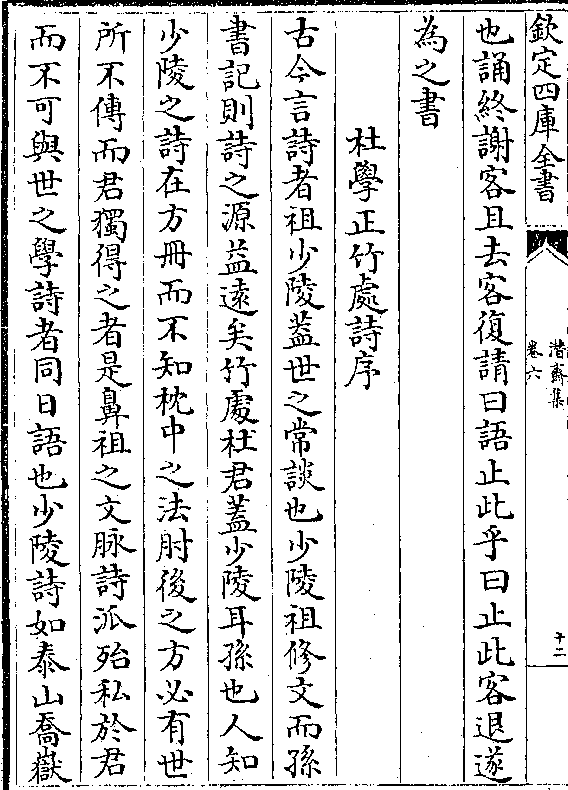 欽定四庫全書
潛齋集
卷六
十二
也誦終謝客且去客復請曰語止此乎曰止此客退遂
為之書
杜學正竹處詩序
古今言詩者祖少陵葢世之常談也少陵祖修文而孫
書記則詩之源益遠矣竹處杜君蓋少陵耳孫也人知
少陵之詩在方冊而不知枕中之法肘後之方必有世
所不傳而君獨得之者是鼻祖之文脉詩派殆私於君
而不可與世之學詩者同日語也少陵詩如泰山喬嶽